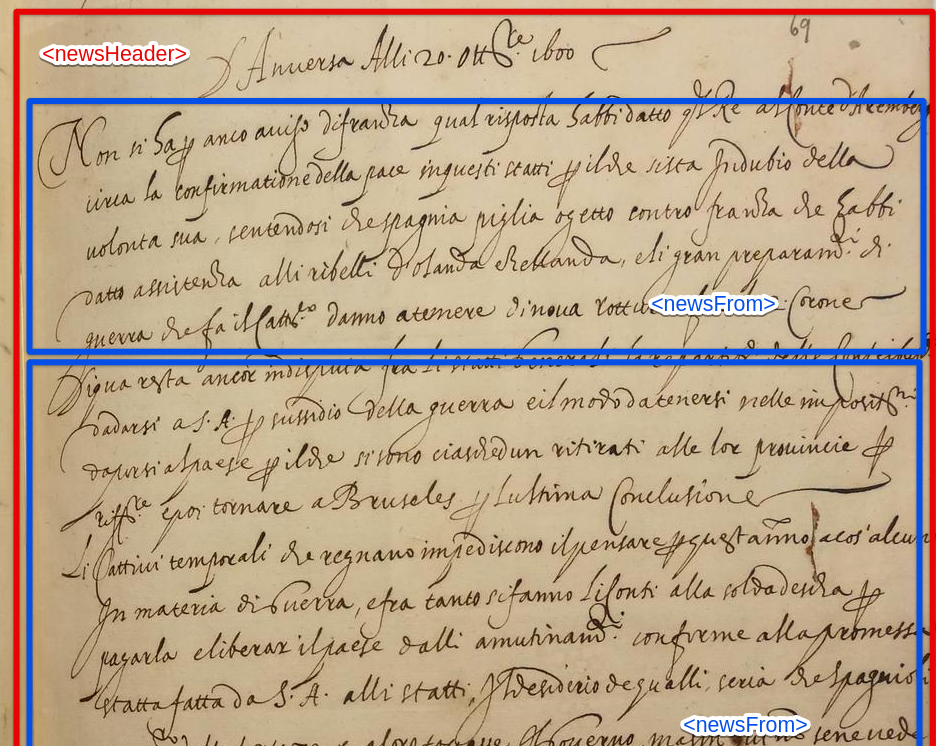 69
<newsHeader>
D'Anuersa Alli 20. Ott.re 1600
Non si ha p anco auiso di franza qual risposta habbi datto q.l Re al Conte d'Aremberg
circa la confirmatione della pace in questi statti p il che si sta In dubio della
volonta sua, sentendosi che spagnia piglia ogetto contro franza che habbi
datto assistenza alli ribelli d'olanda e Zellanda, e li gran preparam.ti di
guerra che fa il Catt.co danno a temere di noua rottura Corone
<newsFrom>
Si qua resta ancor indisputa fra li statti Generali la
da darsi a S. A. p sussidio della guerra e il modo da tenersi nelle imposit.ni
da porsi al paese p il che si sono ciaschedun ritirati alle lor prouincie p
riff.re e poi tornare a Bruseles p l'ultima Conclusione
Li Cattiui temporali che regnano impediscono il pensare p quest'anno a cos' alcun
In materia di Guerra, e fra tanto si fanno li Conti alla soldadescha p
pagarla e liberar il paese dalli amutinam.ti conforme alla promessa
statta fatta da S. A. alli statti, Il desiderio de qualli, seria che spagnioli
<newsFrom>
Gouerno, ma